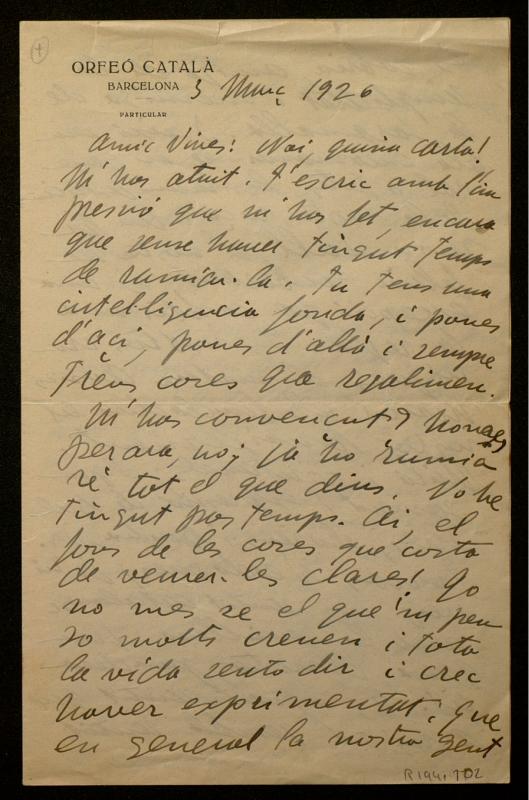 ORFEÓ CATALÀ
BARCELONA
PARTICULAR
3 Març 1926
Amic Vives: Noi, quina carta!
M'has atuit. T'escric amb l'im
presió que m'has fet, encara
que sense haver tingut temps
de rumiar-la. Tu tens una
intel·ligencia fonda, i panes
d'aci, panes d'allà i sempre
trèus coses que regalimen.
M'has convençut? Home,
perara, no; ja ho rumia
ré tot el que dius. No he
tingut pas temps. Ai, el
fons de les coses que costa
de veurer-les clares! Jo
no mes se el que m pen
so molts creuen i tota
la vida sento dir i crec
haver exprimentat; que
en general la nostra gent
R 194, 702